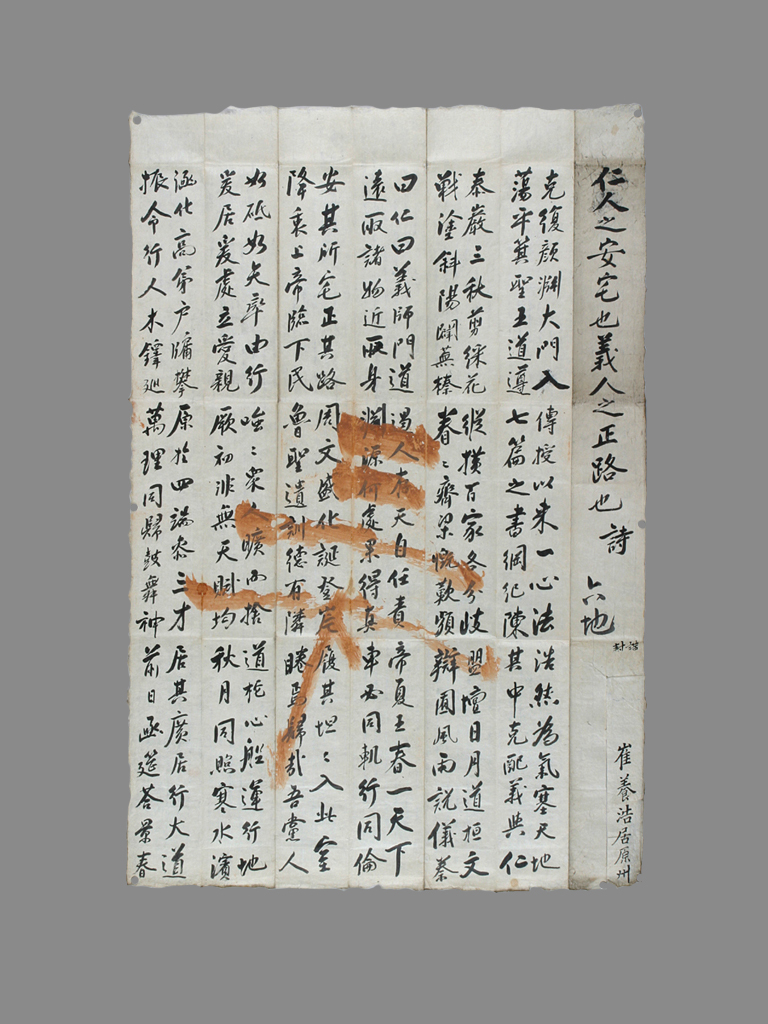 仁人之安宅也義人之正路也 詩
六地
崔養浩居原州
克復顔淵大門入 傳授以來一心法 浩然為氣塞天地
蕩平箕聖王道遵 七篇之書綱紀陳 其中克配義與仁
泰巖三秋剪綵花 縱橫百家各分岐 盟壇日月道桓文
戰塗斜陽闢蕪榛 春〻齊梁慨歎頻 辯圃風雨說儀秦
曰仁曰義師門道 人 天自任責 帝夏王春一天下
遠取諸物近取身 淵源行處果得真 車必同軌行同倫
安其所宅正其路 周文盛化誕登岸 履其坦〻入此室
降衷上帝臨下民 魯聖遺訓德有隣 睠焉歸哉吾黨人
如砥如矢率由行 〻衆人曠而捨 道柁心船運行地
爰居爰處立愛親 厥初非無天賦均 秋月同照寒水濱
涵化高第戶牖攀 原於四端參三才 居其廣居行大道
振令行人木鐸巡 萬理同歸鼓舞神 前日函筵答景春